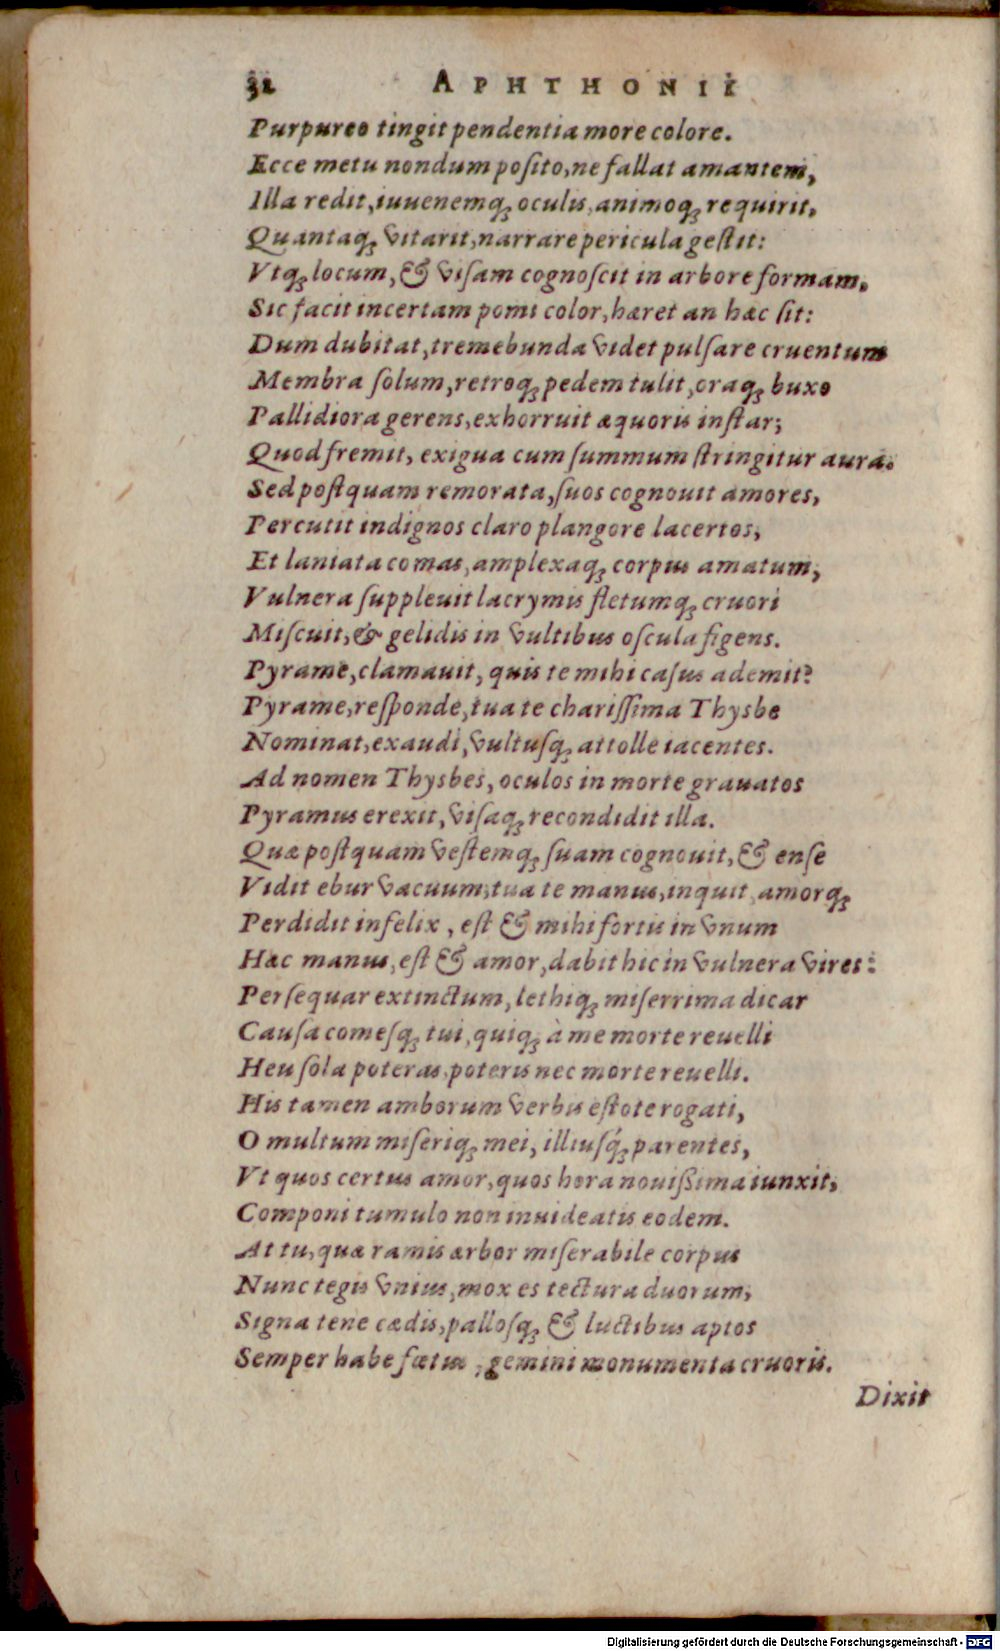 32 APHTHONII
Purpureo tingit pendentia more colore.
Ecce metu nondum poſito, ne fallat amantem,
Illa redit, iuuenemq́; oculis, animoq́; requirit,
Quantaq́; vitarit, narrare pericula geſtit:
Vtq́; locum, & viſam cognoſcit in arbore formam,
Sic facit incertam pomi color, hæret an hæc ſit:
Dum dubitat, tremebunda videt pulſare cruentum
Membra ſolum, retroq́; pedem tulit, oraq́; buxo
Pallidiora gerens, exhorruit æquoris inſtar;
Quod fremit, exigua cum ſummum ſtringitur aura.
Sed poſtquam remorata, ſuos cognouit amores,
Percutit indignos claro plangore lacertos,
Et laniata comas, amplexaq́; corpus amatum,
Vulnera ſuppleuit lacrymis fletumq́; cruori
Miſcuit, & gelidis in vultibus oſcula figens.
Pyrame, clamauit, quis te mihi caſus ademit?
Pyrame, reſponde, tua te chariſſima Thysbe
Nominat, exaudi, vultuſq́; attolle iacentes.
Ad nomen Thysbes, oculos in morte grauatos
Pyramus erexit, viſaq́; recondidit illa.
Quæ poſtquam veſtemq́; ſuam cognouit, & enſe
Vidit ebur vacuum, tua te manus, inquit, amorq́;
Perdidit infelix, eſt & mihi fortis in vnum
Hæc manus, eſt & amor, dabit hic in vulnera vires:
Perſequar extinctum, lethiq́; miſerrima dicar
Cauſa comeſq́; tui, quiq́; à me morte reuelli
Heu ſola poteras, poteris nec morte reuelli.
His tamen amborum verbis eſtote rogati,
O multum miſeriq́; mei, illiuſq́; parentes,
Vt quos certus amor, quos hora nouiſſima iunxit,
Componi tumulo non inuideatis eodem.
At tu, quæ ramis arbor miſerabile corpus
Nunc tegis vnius, mox es tectura duorum,
Signa tene cædis, palloſq́; & luctibus aptos
Semper habe fœtus, gemini monumenta cruoris.
Dixit
Digitalisierung gefördert durch die Deutsche Forschungsgemeinschaft - DFG